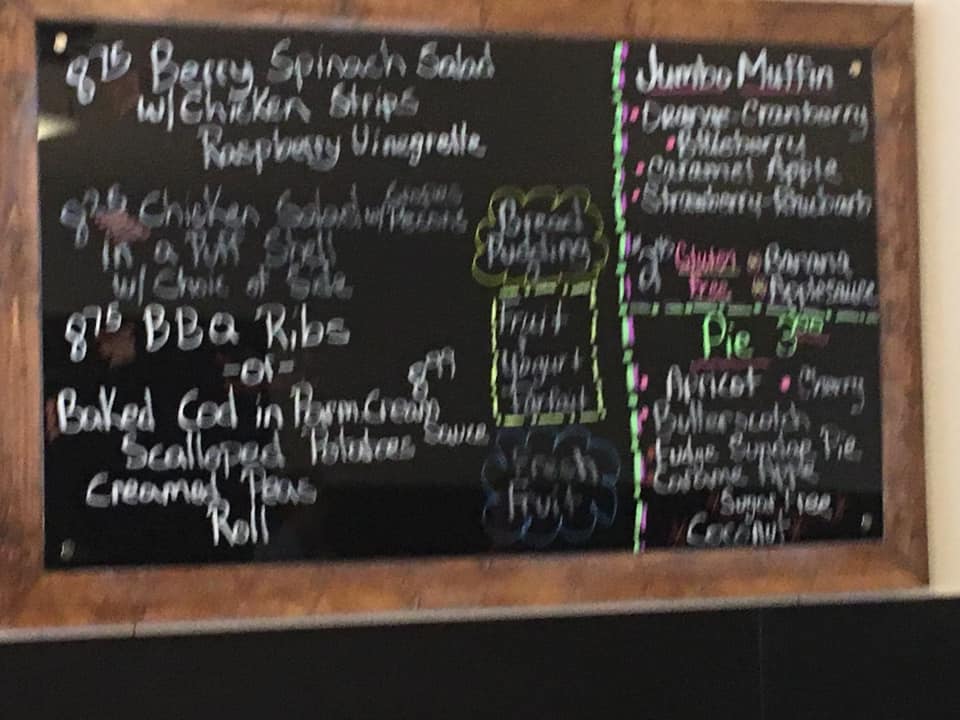 8.75 Berry Spinach Salad
w/ Chicken Strips
Raspberry Vinegrette
Chicken Salad w/
in a Puff Shell
w/ Choic of Side
8.75 BBQ Ribs
-or-
8.99
Baked Cod in Parm Cream
Sauce
Scalloped Potatoes
Creamed Peas
Roll
Bread
Pudding
Fruit
Yogurt
Parfait
Fresh
Fruit
Jumbo Muffin
Orange-Cranberry
Blueberry
Caramel Apple
Strawberry-Rhubarb
Gluten Banana
Free Applesauce
Pie
Apricot Cherry
Butterscotch
Fudge Sundae Pie
Apple
Sugar Free
Coconut